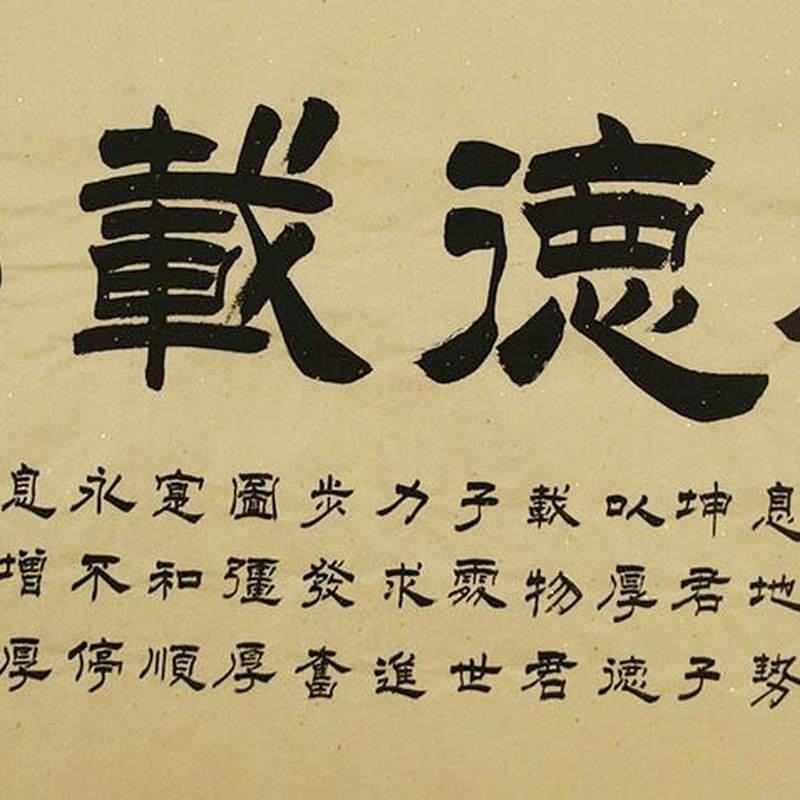 德載
息地勢
坤君子
以厚德
載物君
子處世
力求進
步發奮
圖彊厚
寔和順
永不停
息增厚